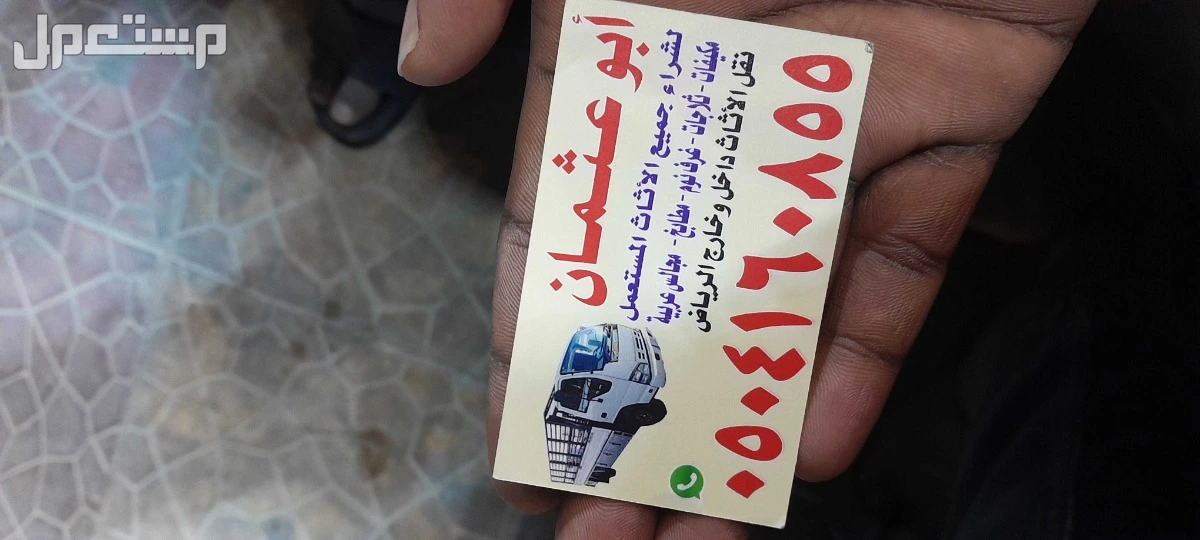 مستعمل
أبو عثمان
لشراء جميع الأثاث المستعمل
مكيفات - ثلاجات - غرف نوم - مطابخ - مجالس عربية
نقل الأثاث داخل وخارج الرياض
٠٥٠٤١٦٠٨٥٥